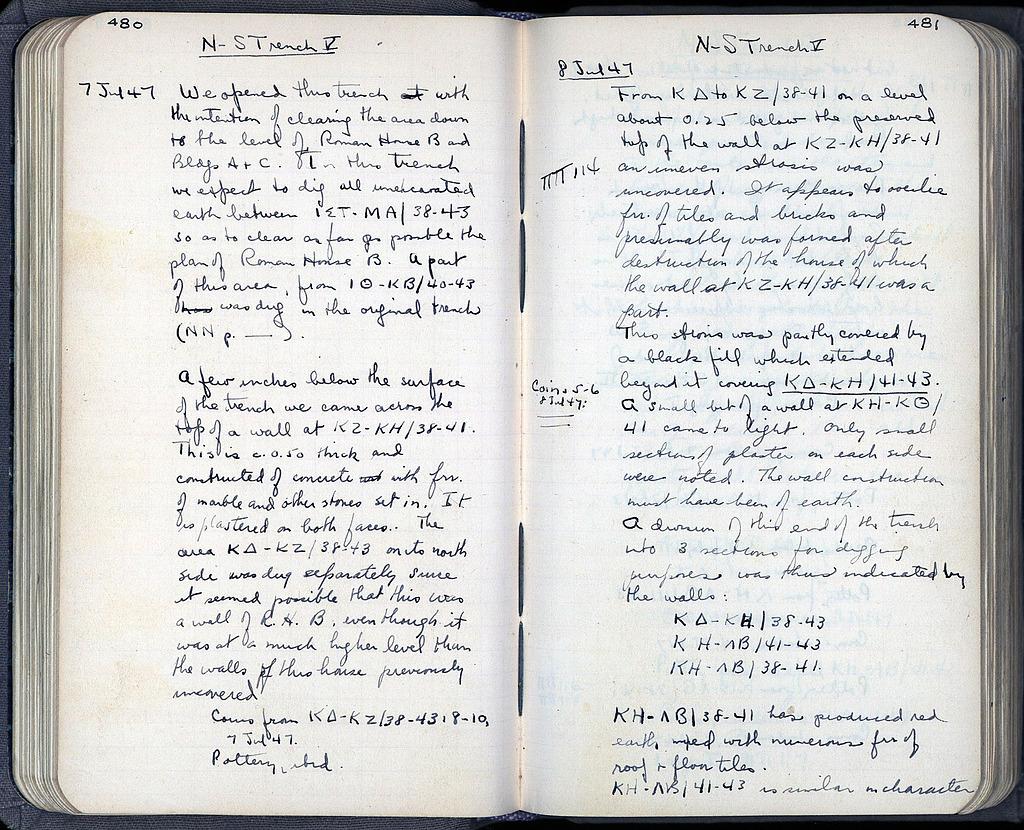 480
N-S Trench V
7 Jul 47 We opened this trench at with
the intention of clearing the area down
to the level of Roman House B and
Bldgs A + C. In this trench
we expect to dig all unexcavated
earth between ΙΣΤ-ΜΑ/38-43
so as to clear as far as possible the
plan of Roman House B. A part
of this area, from ΙΘ-ΚΒ/40-43
was dug in the original trench
(NN p. — ).
A few inches below the surface
of the trench we came across the
top of a wall at ΚΖ-ΚΗ/38-41.
This is c. 0.50 thick and
constructed of concrete with frr.
of marble and other stones set in. It
is plastered on both faces. The
area ΚΔ-ΚΖ/38-43 on its north
side was dug separately since
it seemed possible that this was
a wall of R.H.B, even though it
was at a much higher level than
the walls of this house previously
uncovered
Coins from ΚΔ-ΚΖ/38-43: 8-10,
7 Jul 47.
Pottery, ibid.
481
N-S Trench V
8 Jul 47
From ΚΔ to ΚΖ/38-41 on a level
about 0.25 below the preserved
top of the wall at ΚΖ-ΚΗ/38-41
ΠΠ 114
an uneven strosis was
uncovered. It appears to overlie
frr. of tiles and bricks and
presumably was formed after
destruction of the house of which
the wall at ΚΖ-ΚΗ/38-41 was a
part.
This strosis was partly covered by
a black fill which extended
beyond it covering ΚΔ-ΚΗ/41-43.
Coins 5-6
8 Jul 47:
A small bit of a wall at ΚΗ-ΚΘ/
41 came to light. Only small
sections of plaster on each side
were noted. The wall construction
must have been of earth.
A division of this end of the trench
into 3 sections for digging
purposes was thus indicated by
the walls:
ΚΔ-ΚΗ/38-43
ΚΗ-ΛΒ/41-43
ΚΗ-ΛΒ/38-41.
ΚΗ-ΛΒ/38-41 has produced red
earth, mixed with numerous frr of
roof + floor tiles.
ΚΗ-ΛΒ/41-43 is similar in character